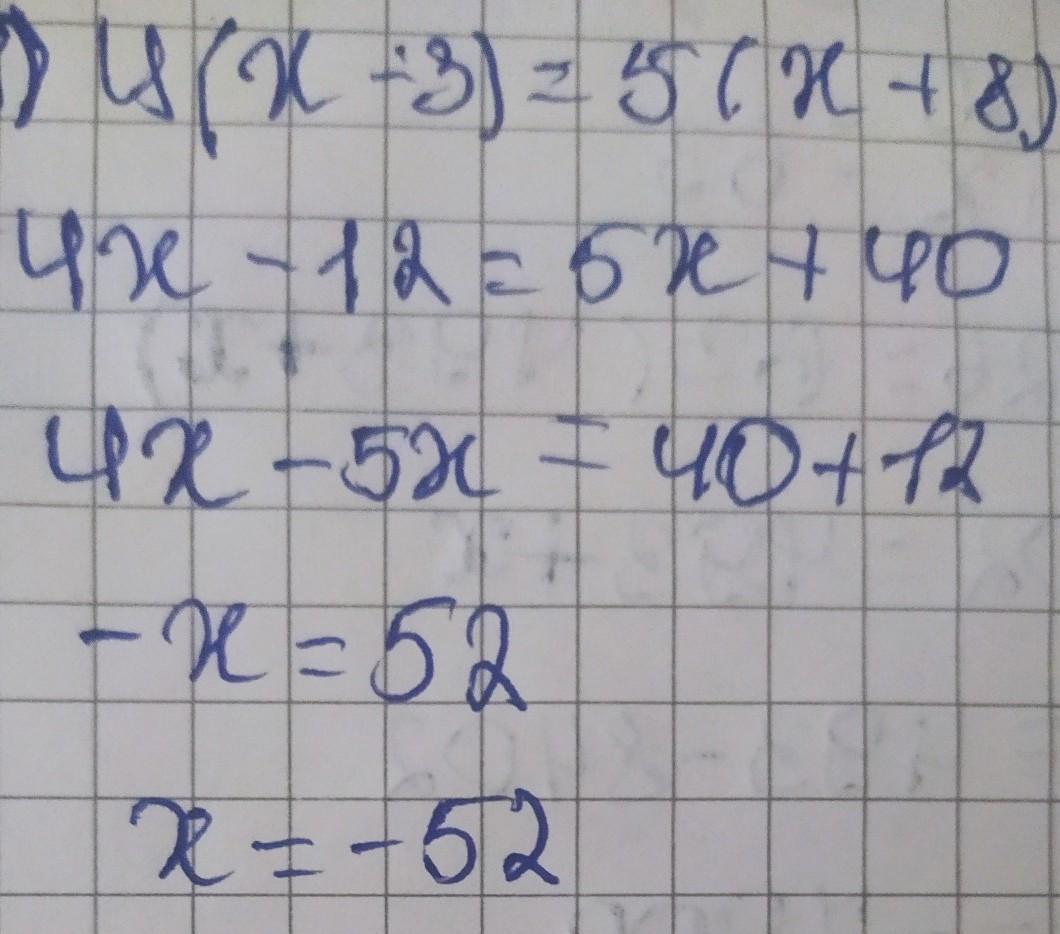 1) 4(x - 3) = 5(x + 8)
4x - 12 = 5x + 40
4x - 5x = 40 + 12
-x = 52
x = -52